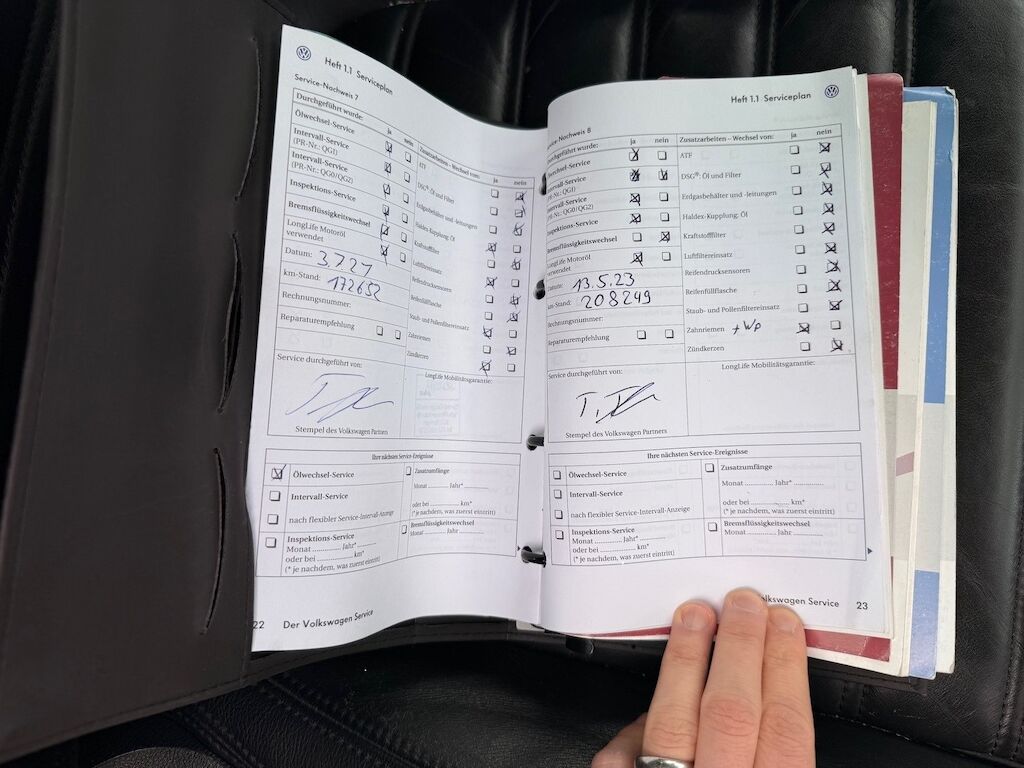 Heft 1.1 Serviceplan
Service-Nachweis 7
Durchgeführt wurde:
ja
nein
Ölwechsel-Service
Intervall-Service
(PR-Nr.: QG1)
Intervall-Service
(PR-Nr.: QG0/QG2)
Inspektions-Service
Bremsflüssigkeitswechsel
LongLife Motoröl
verwendet
Datum: 3.7.21
km-Stand: 172652
Rechnungsnummer:
Reparaturempfehlung
Zusatzarbeiten – Wechsel von:
ja
nein
ATF
DSG®: Öl und Filter
Erdgasbehälter und -leitungen
Haldex-Kupplung: Öl
Kraftstofffilter
Luftfiltereinsatz
Reifendrucksensoren
Reifenfüllflasche
Staub- und Pollenfiltereinsatz
Zahnriemen
Zündkerzen
Service durchgeführt von:
LongLife Mobilitätsgarantie:
Stempel des Volkswagen Partners
Ihre nächsten Service-Ereignisse
Ölwechsel-Service
Intervall-Service
nach flexibler Service-Intervall-Anzeige
Inspektions-Service
Monat ............ Jahr* ............
oder bei ............ km*
(* je nachdem, was zuerst eintritt)
Zusatzumfänge
Monat ............ Jahr* ............
oder bei ............ km*
(* je nachdem, was zuerst eintritt)
Bremsflüssigkeitswechsel
Monat ............ Jahr ............
22 Der Volkswagen Service
Heft 1.1 Serviceplan
Service-Nachweis 8
Durchgeführt wurde:
ja
nein
Ölwechsel-Service
Intervall-Service
(PR-Nr.: QG1)
Intervall-Service
(PR-Nr.: QG0/QG2)
Inspektions-Service
Bremsflüssigkeitswechsel
LongLife Motoröl
verwendet
Datum: 13.5.23
km-Stand: 208249
Rechnungsnummer:
Reparaturempfehlung
Zusatzarbeiten – Wechsel von:
ja
nein
ATF
DSG®: Öl und Filter
Erdgasbehälter und -leitungen
Haldex-Kupplung: Öl
Kraftstofffilter
Luftfiltereinsatz
Reifendrucksensoren
Reifenfüllflasche
Staub- und Pollenfiltereinsatz
Zahnriemen + Wp
Zündkerzen
Service durchgeführt von:
LongLife Mobilitätsgarantie:
Stempel des Volkswagen Partners
Ihre nächsten Service-Ereignisse
Ölwechsel-Service
Intervall-Service
nach flexibler Service-Intervall-Anzeige
Inspektions-Service
Monat ............ Jahr* ............
oder bei ............ km*
(* je nachdem, was zuerst eintritt)
Zusatzumfänge
Monat ............ Jahr* ............
oder bei ............ km*
(* je nachdem, was zuerst eintritt)
Bremsflüssigkeitswechsel
Monat ............ Jahr ............
Volkswagen Service 23